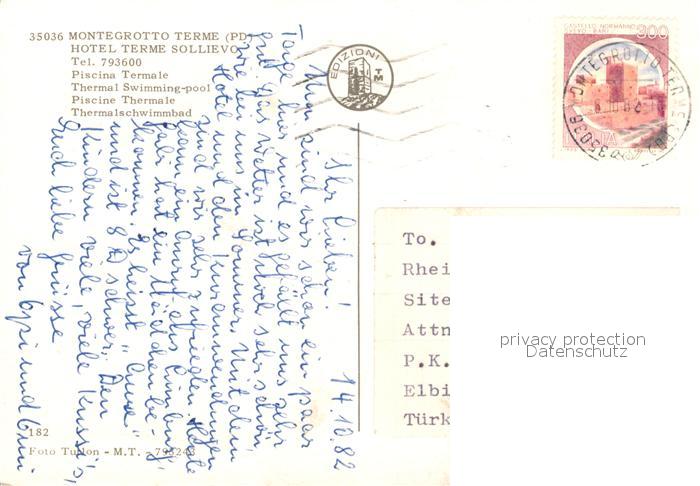 35036 MONTEGROTTO TERME (PD)
HOTEL TERME SOLLIEVO
Tel. 793600
Piscina Termale
Thermal Swimming-pool
Piscine Thermale
Thermalschwimmbad
EDIZIONI
TM
CASTELLO NORMANNO
SVEVO BARI
300
ITALIA
35036 MONTEGROTTO TERME
14.10.82
Ihr Lieben!
Nun sind wir schon ein paar
Tage hier und es gefällt uns sehr
gut. Das Wetter ist auch sehr schön,
wie bei uns im Sommer. Mit dem
Hotel und den Kuranwendungen
sind wir sehr zufrieden. Heute
kam ein Anruf aus
hat ein Mädchen be-
kommen. Es heisst
und ist 8 schwer. Den
Kindern viele, viele Kussis,
Euch liebe Grüsse
von Opi und Omi
182
Foto Turlon - M.T. - 793243
To.
Rhei
Site
Attn
P.K.
Elbi
Türk
privacy protection
Datenschutz